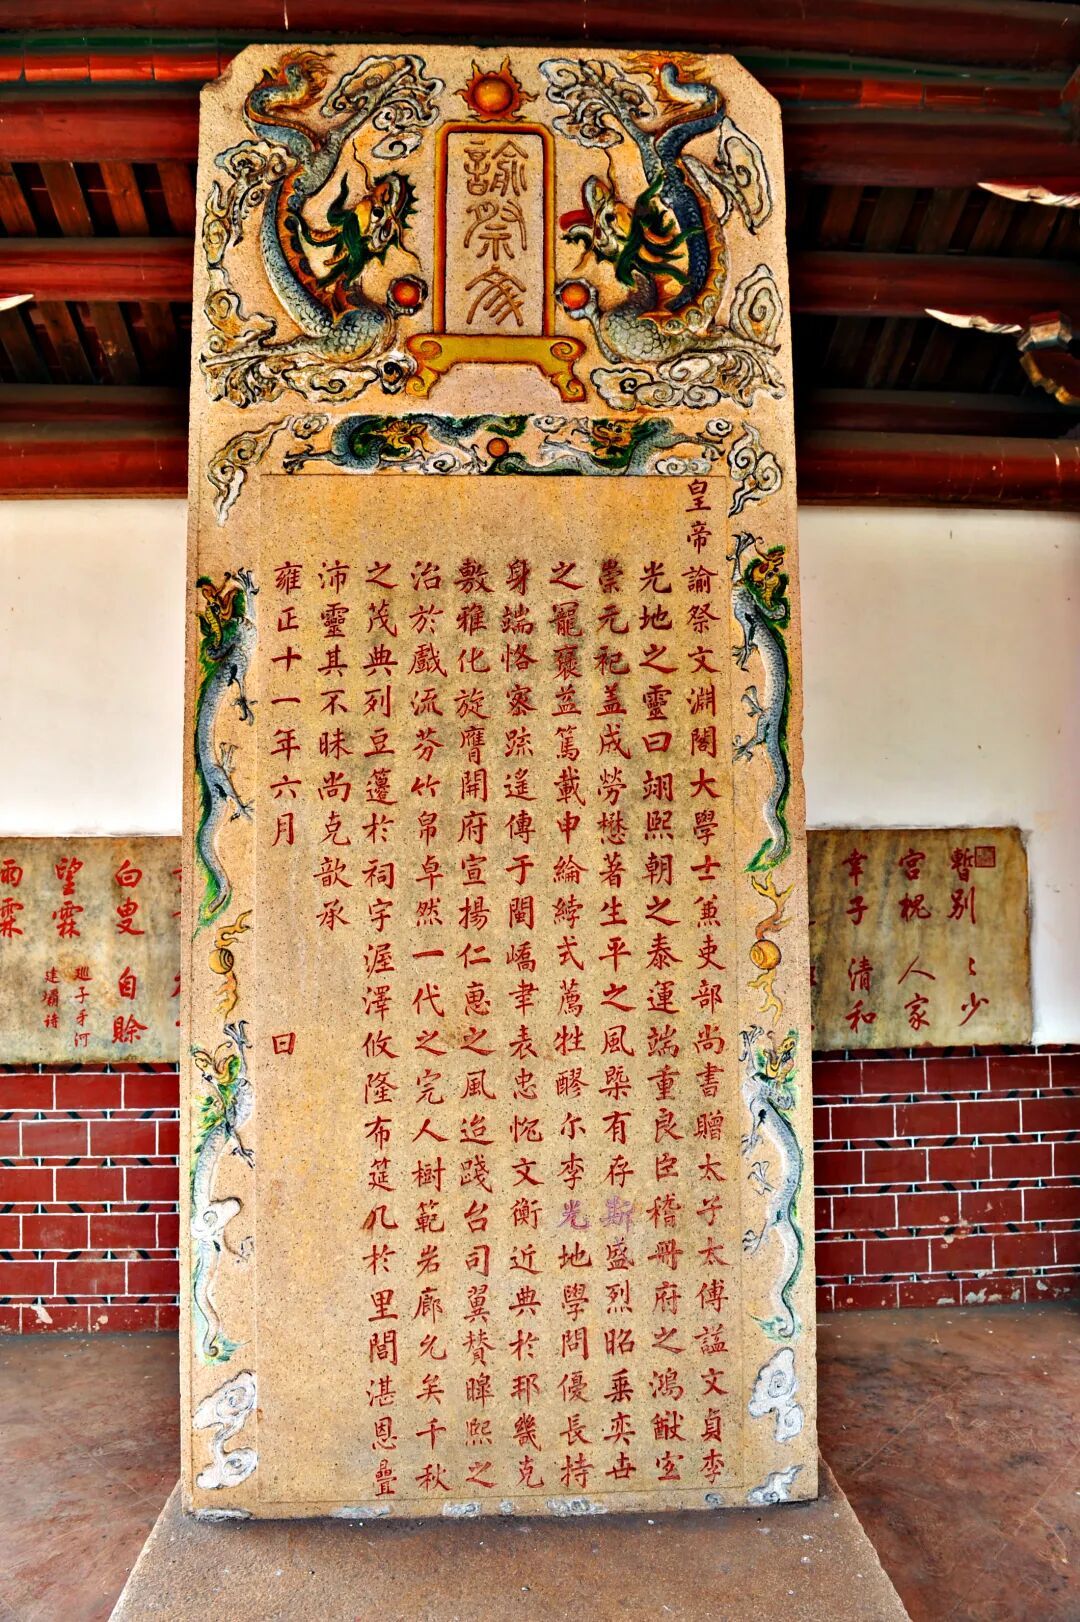 諭祭文
皇帝諭祭文淵閣大學士兼吏部尚書贈太子太傅諡文貞李
光地之靈曰翊熙朝之泰運端重良臣稽冊府之鴻猷宜
崇元祀盖成勞懋著生平之風槩有存斯盛烈昭垂奕世
之寵襃益篤載申綸綍式薦牲醪尔李光地學問優長持
身端恪密䟽遙傳于閩嶠聿表忠忱文衡近典於邦畿克
敷雅化旋膺開府宣揚仁惠之風迨踐台司翼贊暭熙之
治於戲流芬竹帛卓然一代之完人樹範岩廊允矣千秋
之茂典列豆籩於祠宇渥澤攸隆布筵几於里閭湛恩疊
沛靈其不昧尚克歆承
雍正十一年六月　日
暫別〻少
宮槐人家
幸子清和
白叟自賒
望霖
雨霖